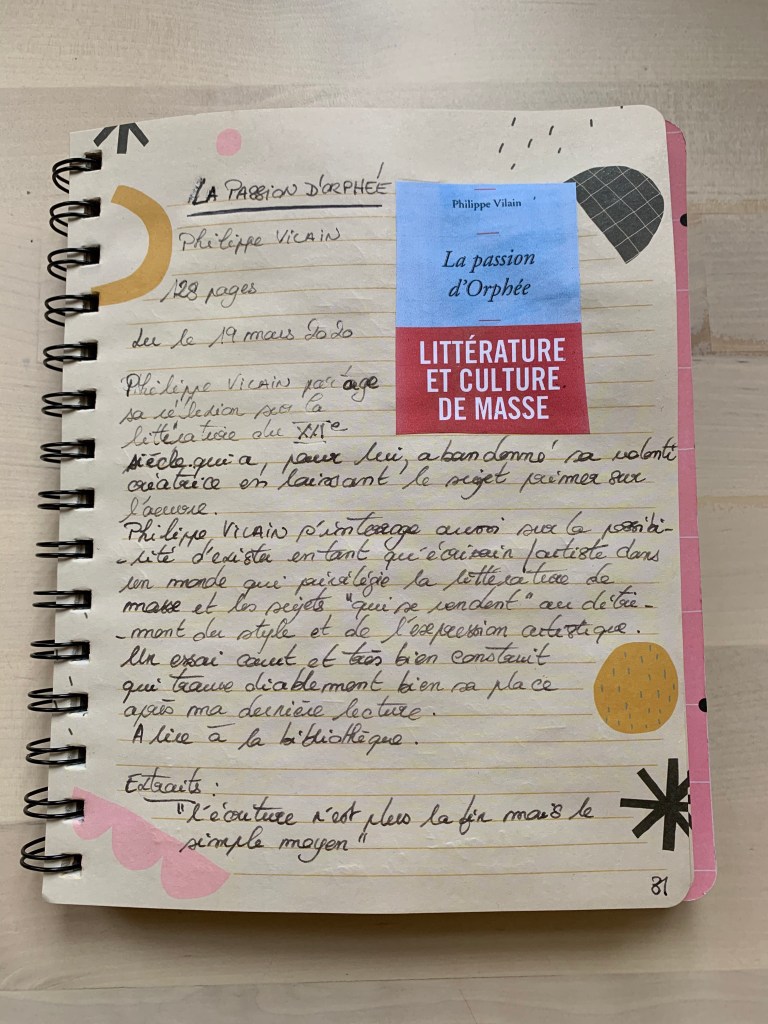 LA PASSION D'ORPHÉE
Philippe Vilain
La passion
d'Orphée
LITTÉRATURE
ET CULTURE
DE MASSE
Philippe VILAIN
128 pages
lu le 19 mars 2020
Philippe VILAIN partage
sa réflexion sur la
littérature du XXIe
siècle qui a, pour lui, abandonné sa volonté
créatrice en laissant le sujet primer sur
l'œuvre.
Philippe VILAIN s'interroge aussi sur la possibi-
-lité d'exister en tant qu'écrivain/artiste dans
un monde qui privilégie la littérature de
masse et les sujets "qui se vendent" au détri-
-ment du style et de l'expression artistique.
Un essai court et très bien construit
qui trouve diablement bien sa place
après ma dernière lecture.
A lire à la bibliothèque.
Extraits :
"l'écriture n'est plus la fin mais le
simple moyen"
81